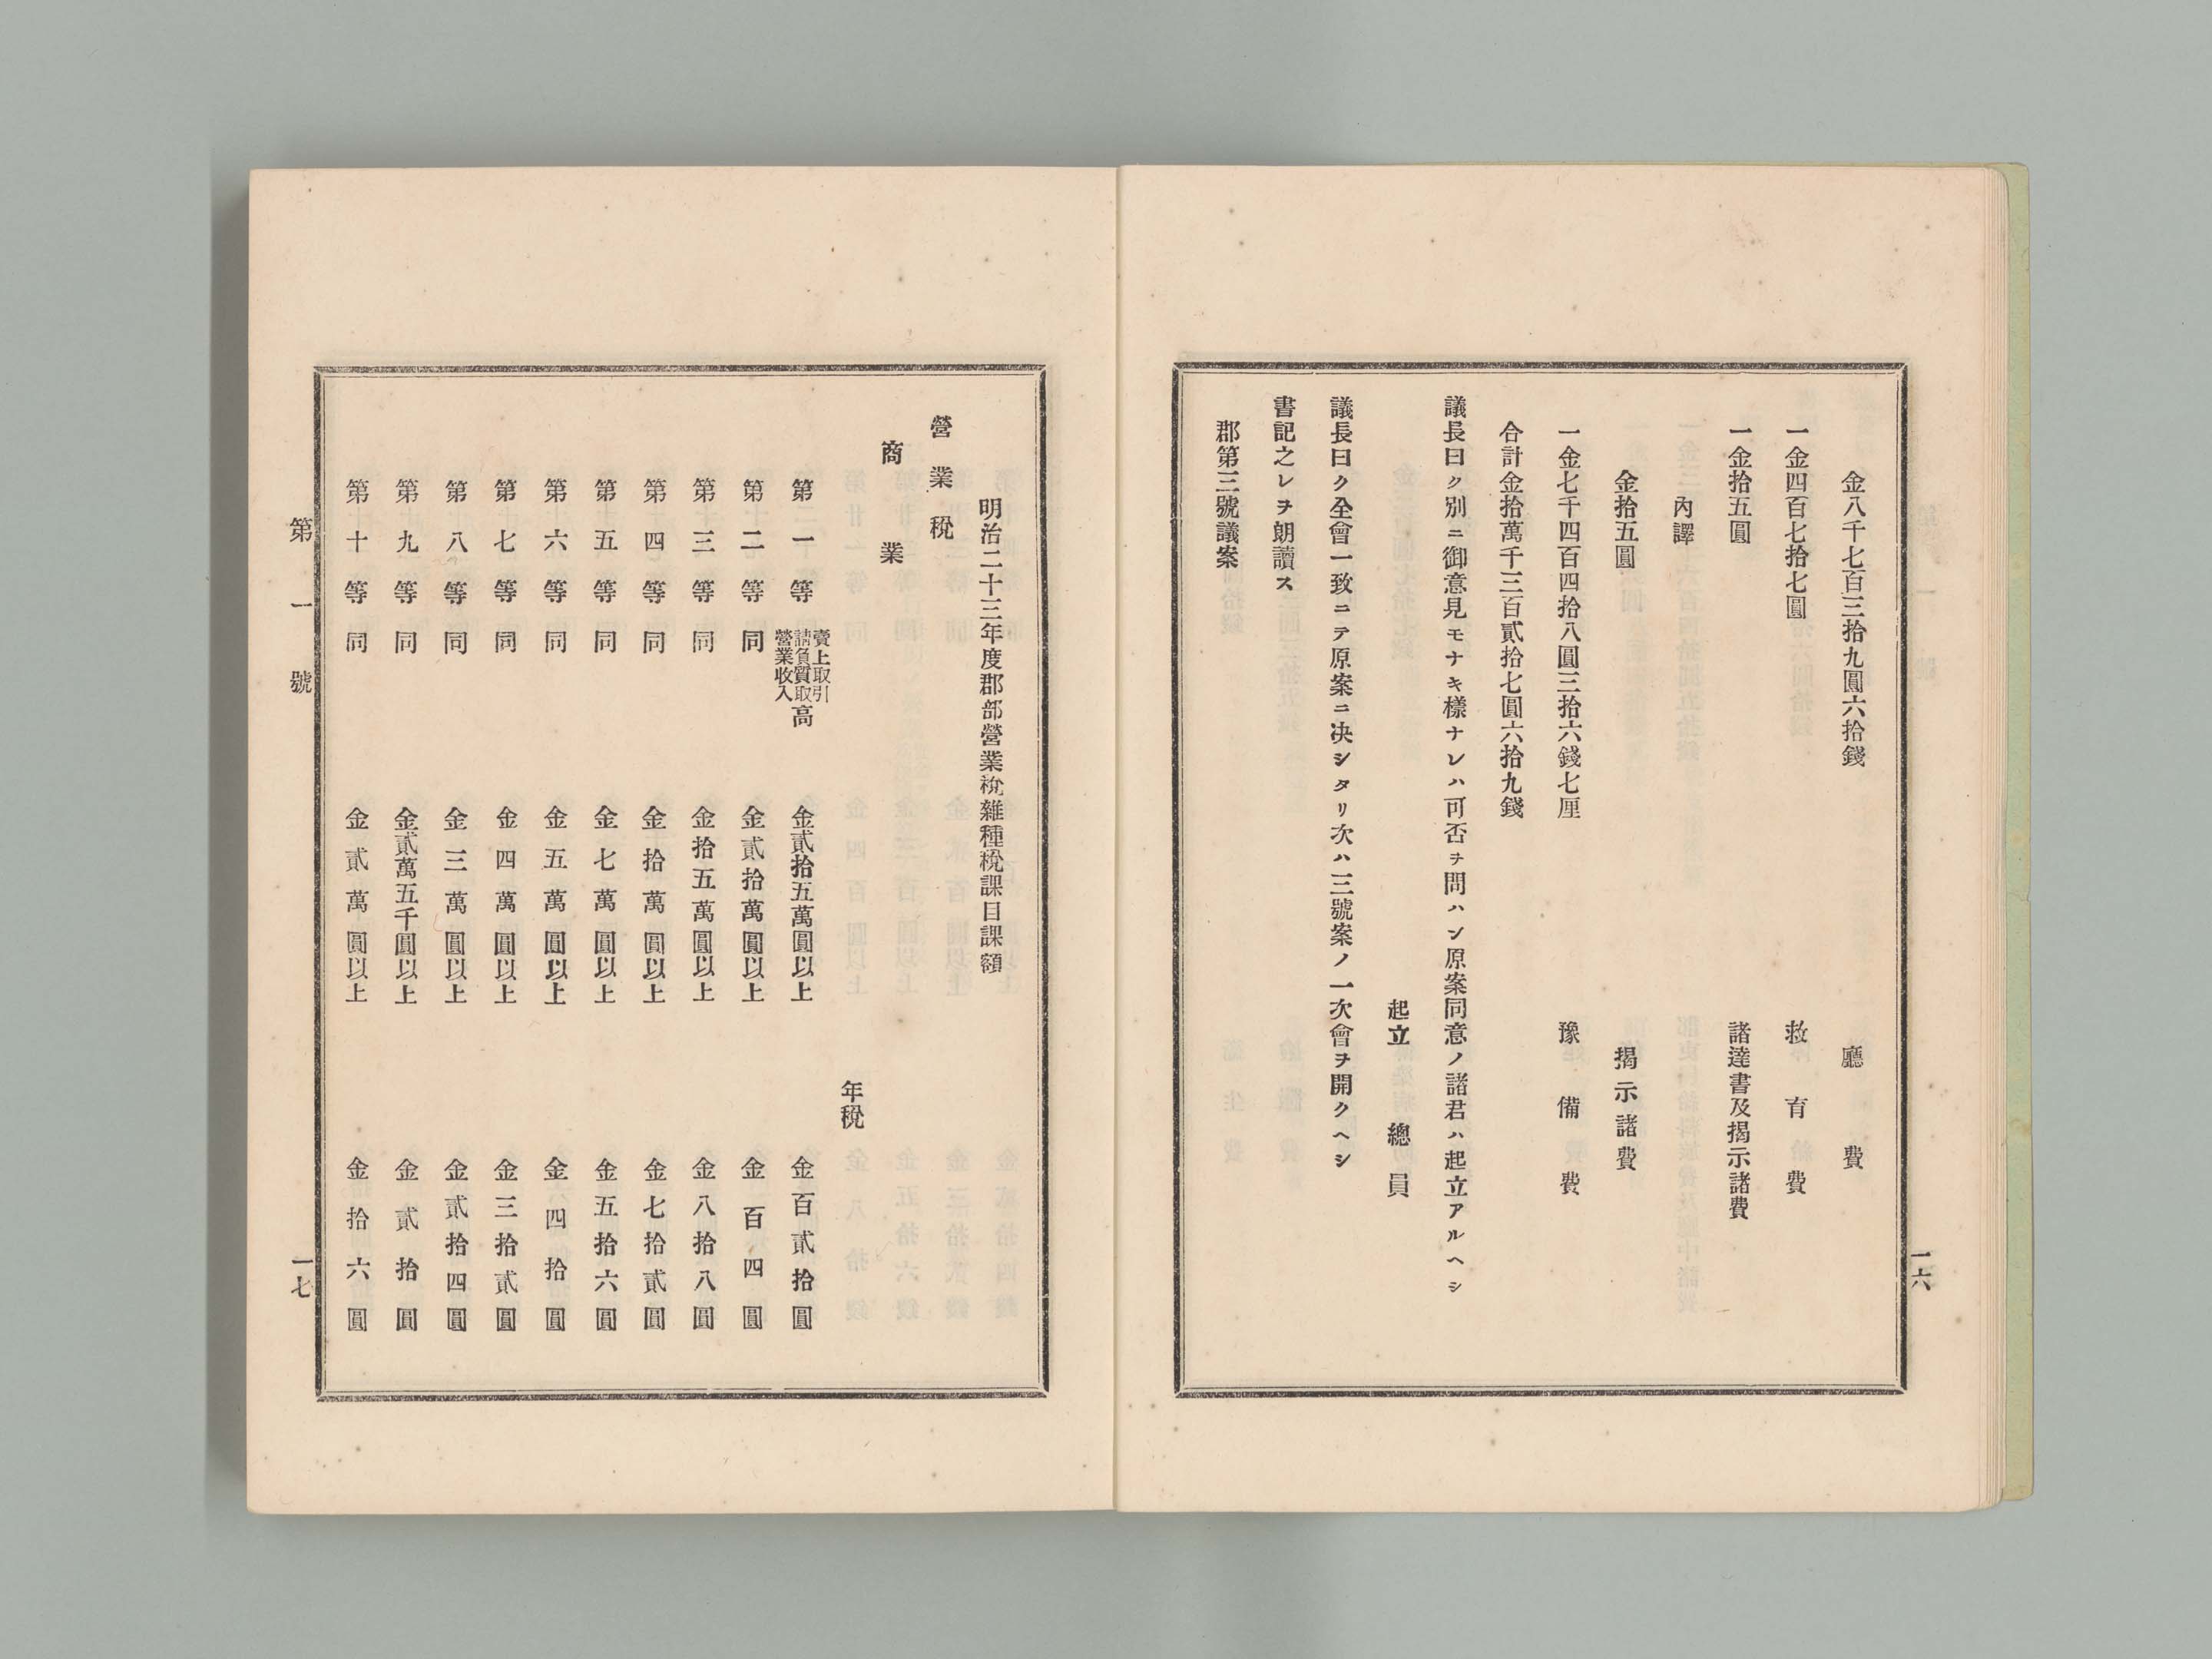 金八千七百三拾九圓六拾錢　廳費
一金四百七拾七圓　救育費
一金拾五圓　諸達書及揭示諸費
內譯
金拾五圓　揭示諸費
一金七千四百四拾八圓三拾六錢七厘　豫備費
合計金拾萬千三百貳拾七圓六拾九錢
議長曰ク別ニ御意見モナキ樣ナレハ可否ヲ問ハン原案同意ノ諸君ハ起立アルヘシ
起立　總員
議長曰ク全會一致ニテ原案ニ决シタリ次ハ三號案ノ一次會ヲ開クヘシ
書記之レヲ朗讀ス
郡第三號議案
一六
明治二十三年度郡部營業稅雜種稅課目課額
營業稅
商業
年稅
第一等　賣上取引請負質取營業收入高　金貳拾五萬圓以上　金百貳拾圓
第二等　同　金貳拾萬圓以上　金百四圓
第三等　同　金拾五萬圓以上　金八拾八圓
第四等　同　金拾萬圓以上　金七拾貳圓
第五等　同　金七萬圓以上　金五拾六圓
第六等　同　金五萬圓以上　金四拾圓
第七等　同　金四萬圓以上　金三拾貳圓
第八等　同　金三萬圓以上　金貳拾四圓
第九等　同　金貳萬五千圓以上　金貳拾圓
第十等　同　金貳萬圓以上　金拾六圓
第一號　一七